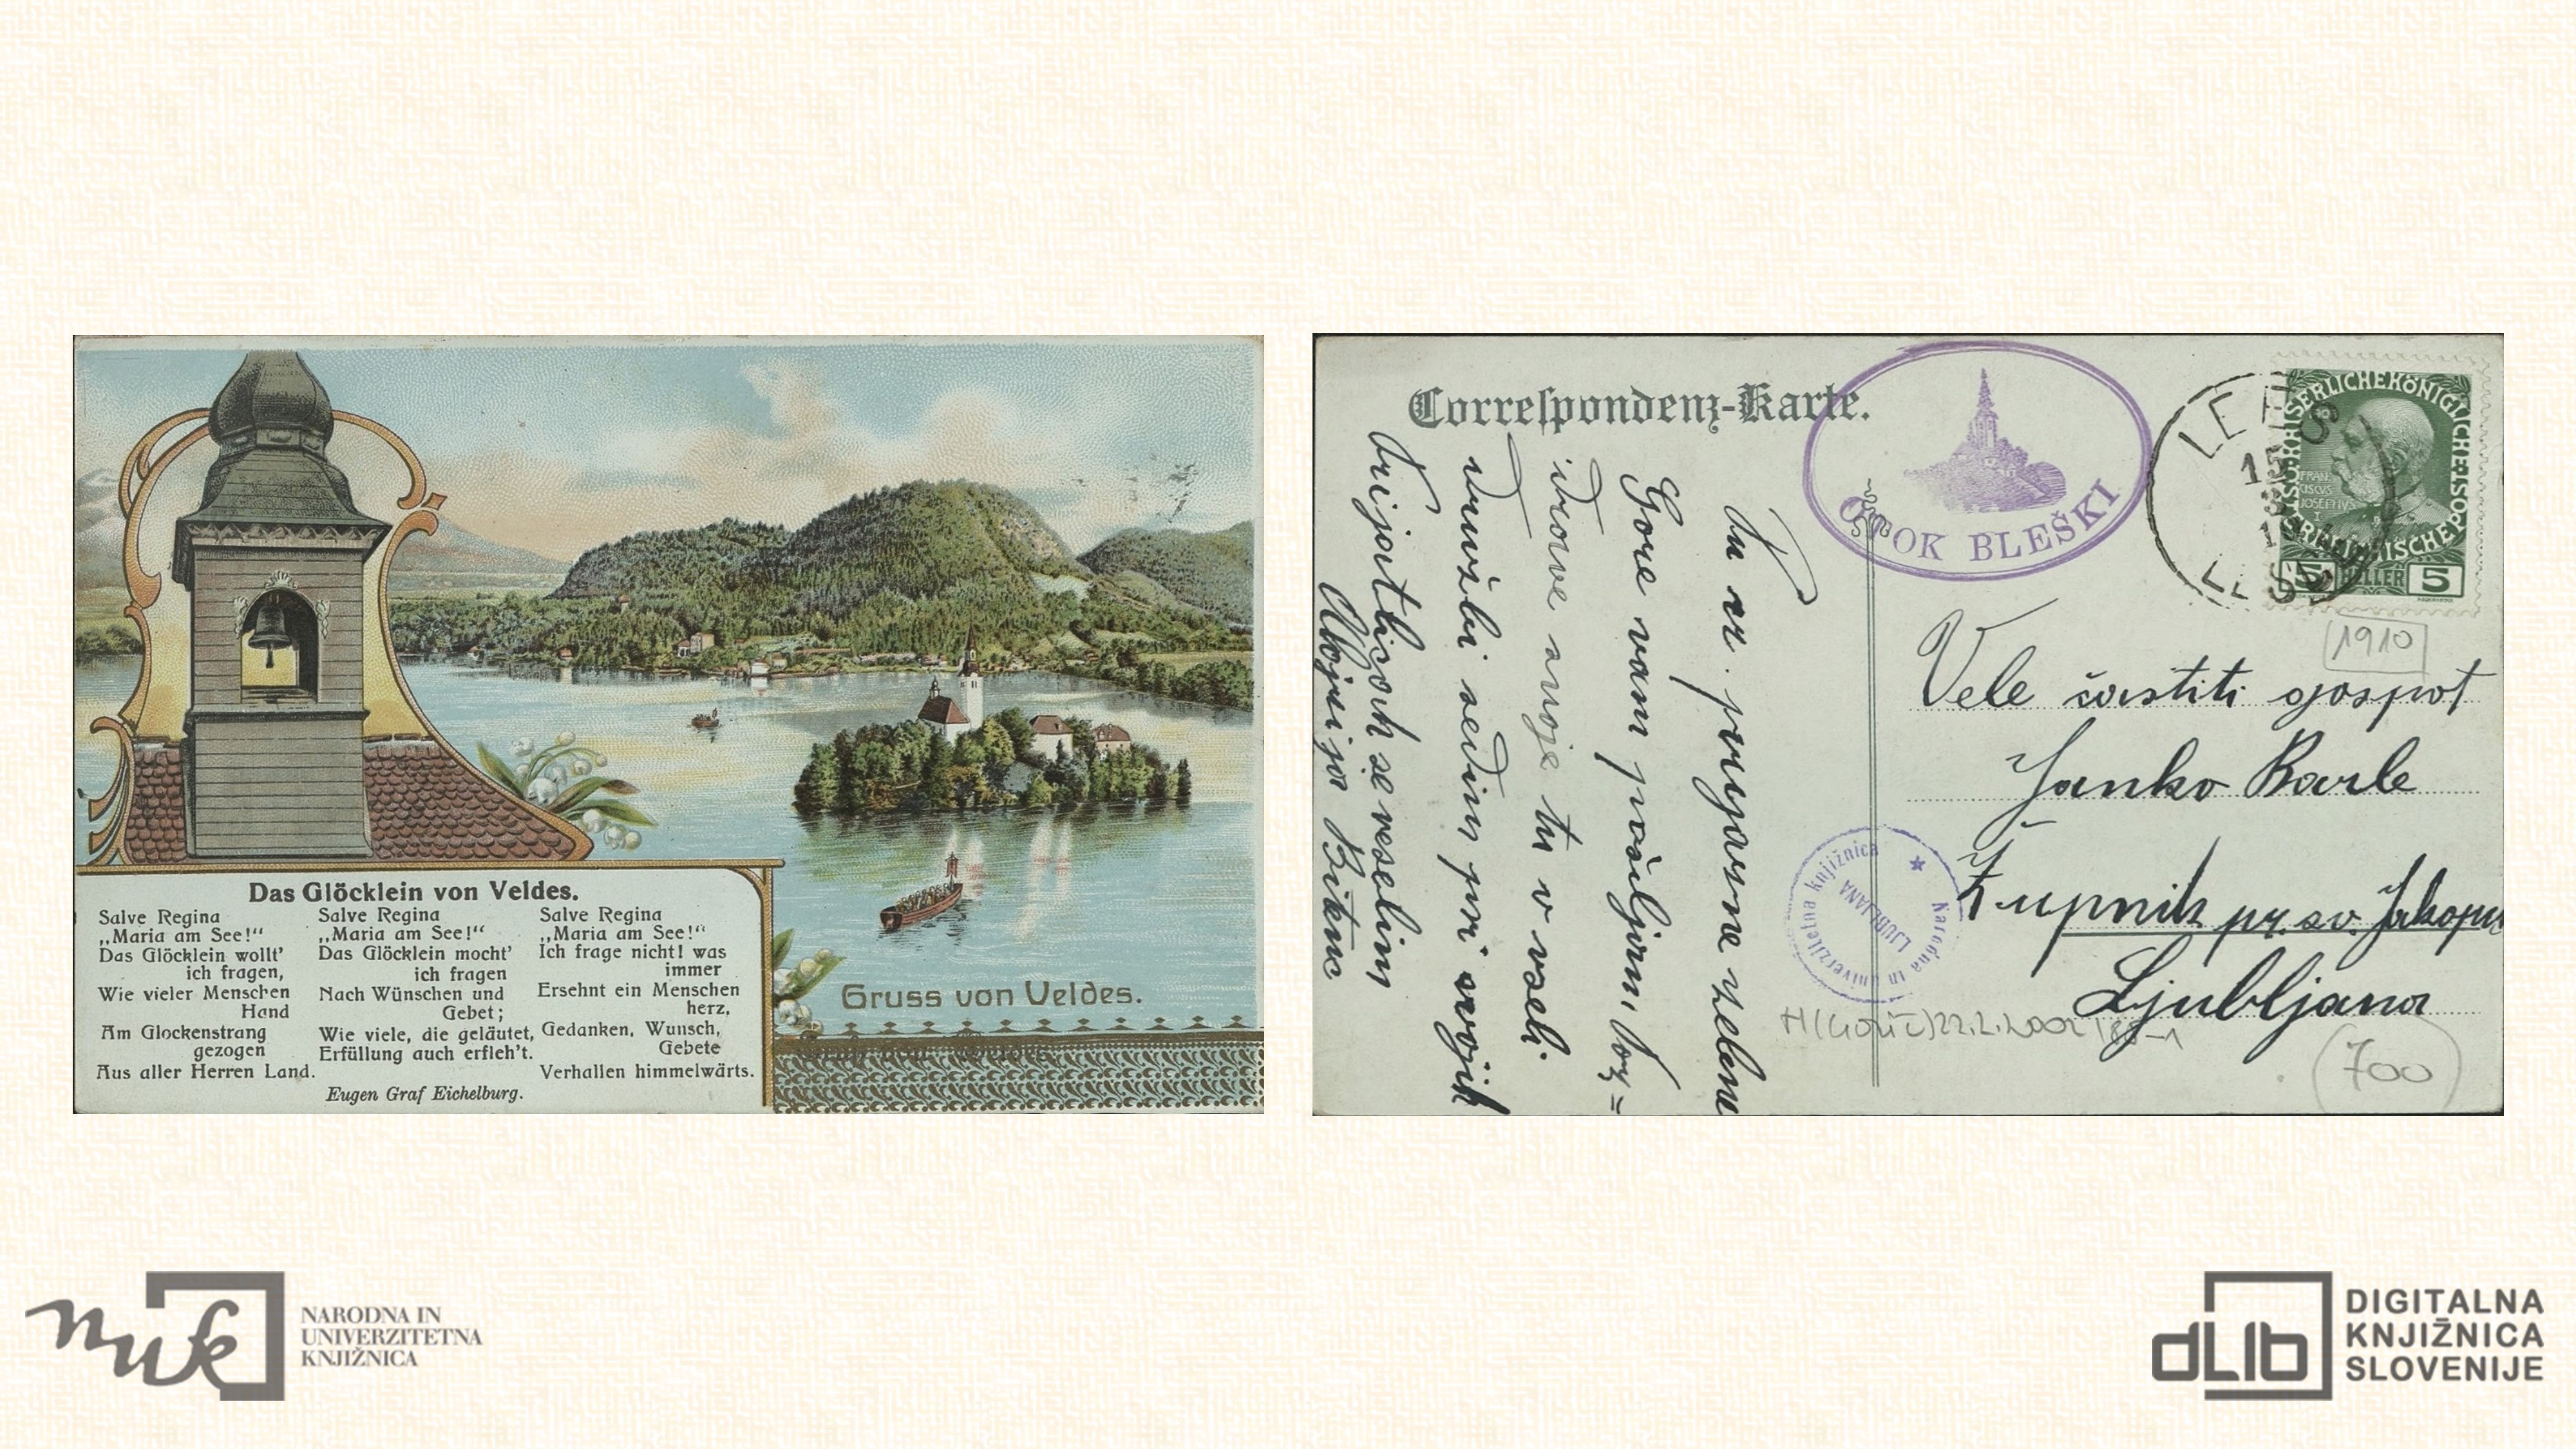 Das Glöcklein von Veldes.
Salve Regina
„Maria am See!“
Das Glöcklein wollt'
ich fragen,
Wie vieler Menschen
Hand
Am Glockenstrang
gezogen
Aus aller Herren Land.
Salve Regina
„Maria am See!“
Das Glöcklein mocht'
ich fragen
Nach Wünschen und
Gebet;
Wie viele, die geläutet,
Erfüllung auch erfleh't.
Salve Regina
„Maria am See!“
Ich frage nicht! was
immer
Ersehnt ein Menschen
herz,
Gedanken, Wunsch,
Gebete
Verhallen himmelwärts.
Eugen Graf Eichelburg.
Gruss von Veldes.
Correspondenz-Karte.
OTOK BLEŠKI
KAISERLICHE KÖNIGLICHE ÖSTERREICHISCHE POST
FRAN
CISCVS
JOSEPHVS
I
5 HELLER 5
1910
prijazne zelene
Gore vam pošiljam, poz=
drave svoje tu v veseli
družbi sedim pri svojih
prijatlicah se veselim
Alojzija
Vele častiti gospot
Janko Barle
Župnik pr. sv. Jakopu
Ljubljana
Narodna in univerzitetna knjižnica
LJUBLJANA
22.2.2002
700
nuk
NARODNA IN
UNIVERZITETNA
KNJIŽNICA
dLib
DIGITALNA
KNJIŽNICA
SLOVENIJE